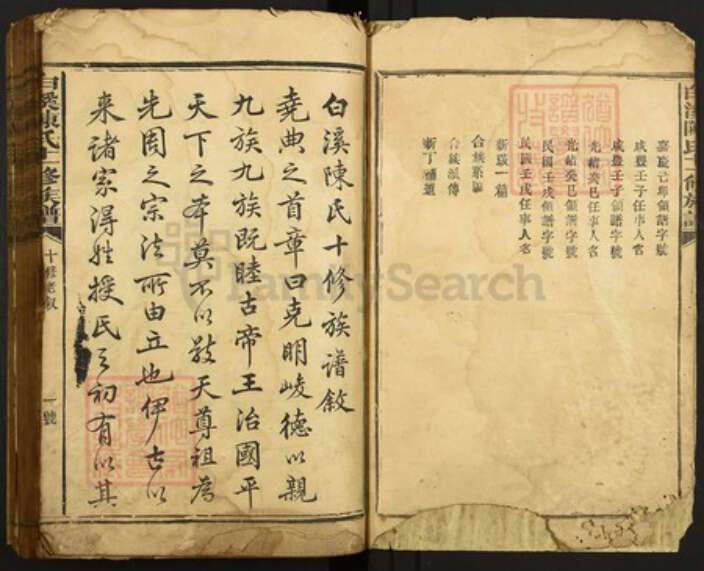 嘉慶己卯領譜字號
咸豐壬子任事人名
咸豐壬子領譜字號
光緒癸巳任事人名
光緒癸巳領譜字號
民國壬戌任事人名
民國壬戌領譜字號
新職一種
合族系圖
合族派傳
新丁補遺
白溪陳氏十修族譜敘
堯典之首章曰克明峻德以親
九族九族既睦古帝王治國平
天下之本莫不以敬天尊祖為
先周之宗法所由立也伊古以
來諸家得姓授氏之初有以其
白溪陳氏十修族譜
十修老敘
一號
FamilySearch